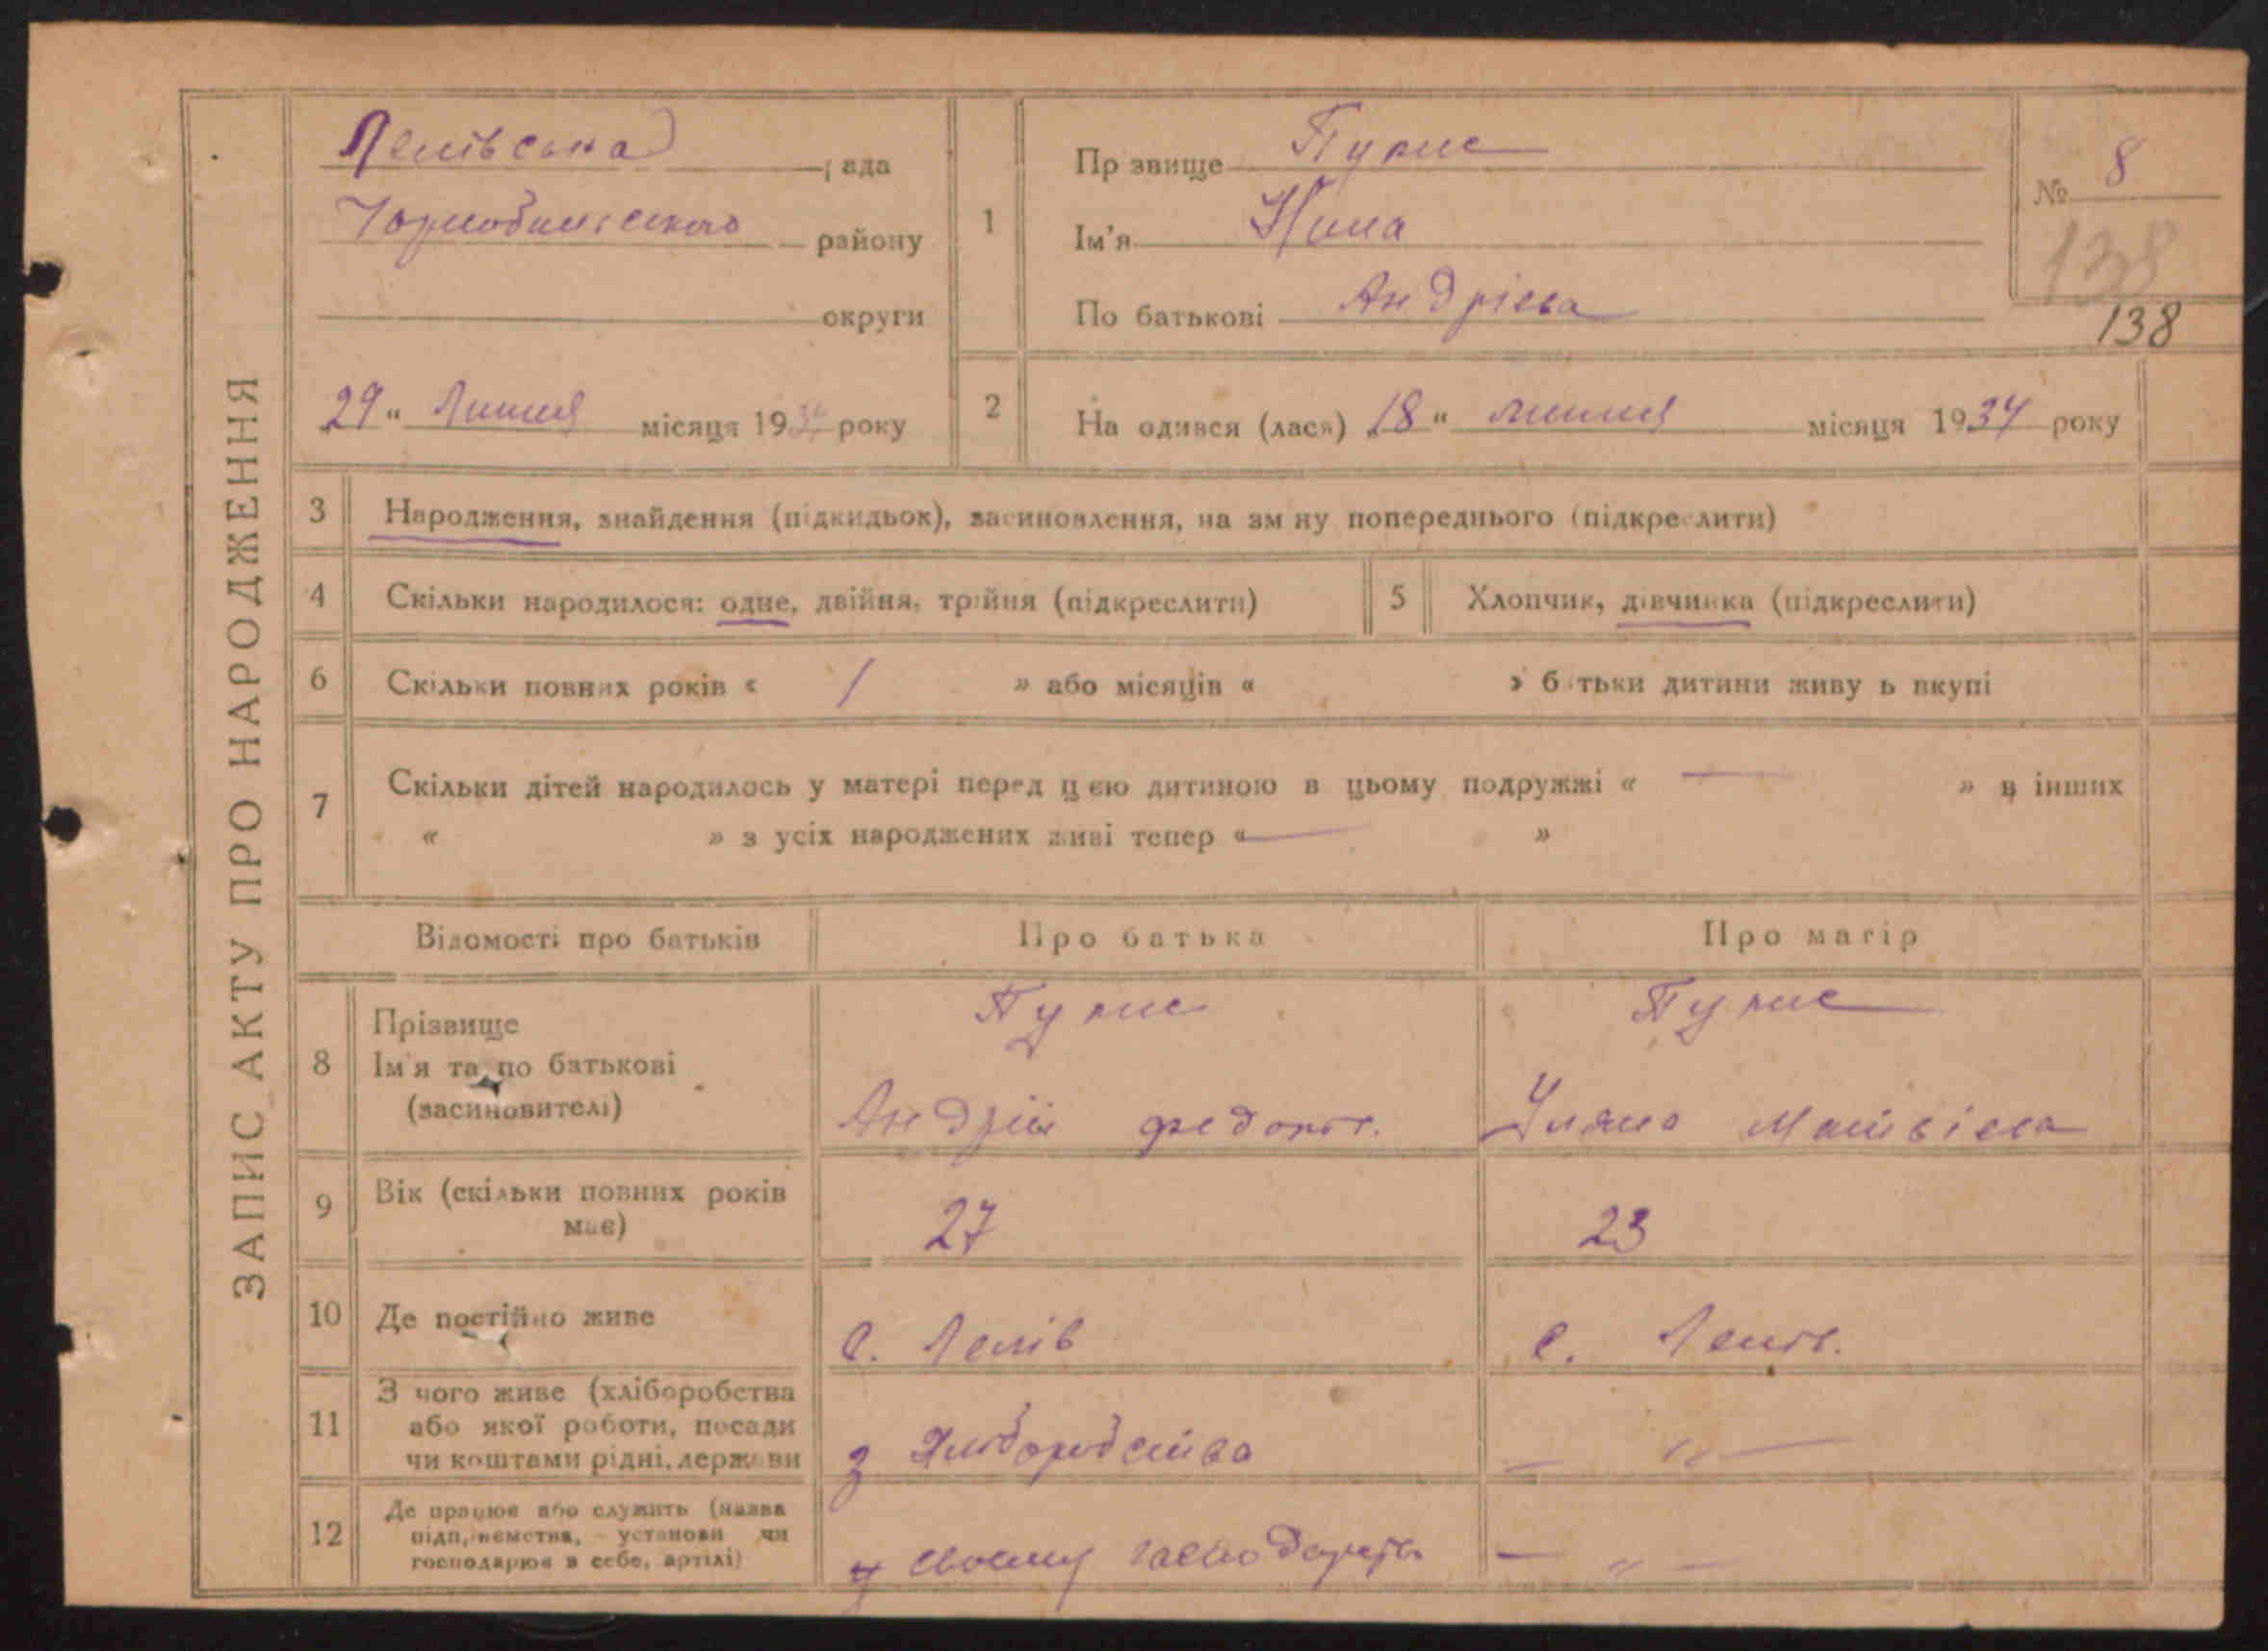 ЗАПИС АКТУ ПРО НАРОДЖЕННЯ
Лелівська рада
Чорнобильського району
округи
29 „ Липня місяця 1934 року
1
Прізвище
Ім'я Нина
По батькові Андрієва
№ 8
138
138
2
Народився (лася) „18 " липня місяця 1934 року
3 Народження, знайдення (підкидьок), засиновлення, на зміну попереднього (підкреслити)
4 Скільки народилося: одне, двійня, трійня (підкреслити)
5 Хлопчик, дівчинка (підкреслити)
6 Скільки повних років « 1 » або місяців « » батьки дитини живуть вкупі
7 Скільки дітей народилось у матері перед цією дитиною в цьому подружжі « — » в інших
« » з усіх народжених живі тепер « — »
Відомості про батьків Про батька Про матір
8 Прізвище
Ім'я та по батькові
(засиновителі)
Андрій Федоров.
Уляна Матвієва
9 Вік (скільки повних років
має)
27 23
10 Де постійно живе с. Лелів с. Лелів.
11 З чого живе (хліборобства
або якої роботи, посади
чи коштами рідні, держави
з Хліборобства — " —
12 Де працює або служить (назва
підприємства, установи чи
господарює в себе, артілі)
у своєму господарстві — " —